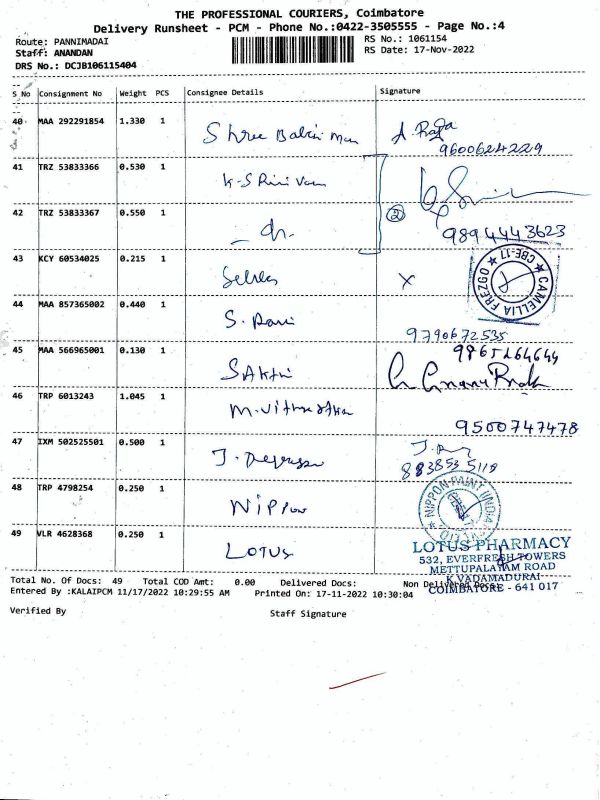 THE PROFESSIONAL COURIERS, Coimbatore
Delivery Runsheet - PCM - Phone No.:0422-3505555 - Page No.:4
Route: PANNIMADAI
RS No.: 1061154
Staff: ANANDAN
RS Date: 17-Nov-2022
DRS No.: DCJB106115404
S No Consignment No Weight PCS Consignee Details Signature
40 MAA 292291854 1.330 1 Shree
9600624229
41 TRZ 53833366 0.530 1 K.S
42 TRZ 53833367 0.550 1 2
9894443623
43 KCY 60534025 0.215 1 X
CAMELLIA CBE-17
44 MAA 857365002 0.440 1 S. Rani
9790672535
45 MAA 566965001 0.130 1 SAKthi
46 TRP 6013243 1.045 1
9500747478
47 IXM 502525501 0.500 1 J.
48 TRP 4798254 0.250 1 NiPPon
NIPPON PAINT (INDIA
49 VLR 4628368 0.250 1 LOTUS
LOTUS PHARMACY
532, EVERFRESH TOWERS
METTUPALAYAM ROAD
K.VADAMADURAI
COIMBATORE - 641 017
Total No. Of Docs: 49 Total COD Amt: 0.00 Delivered Docs: Non Delivered Docs:
Entered By :KALAIPCM 11/17/2022 10:29:55 AM Printed On: 17-11-2022 10:30:04
Verified By Staff Signature